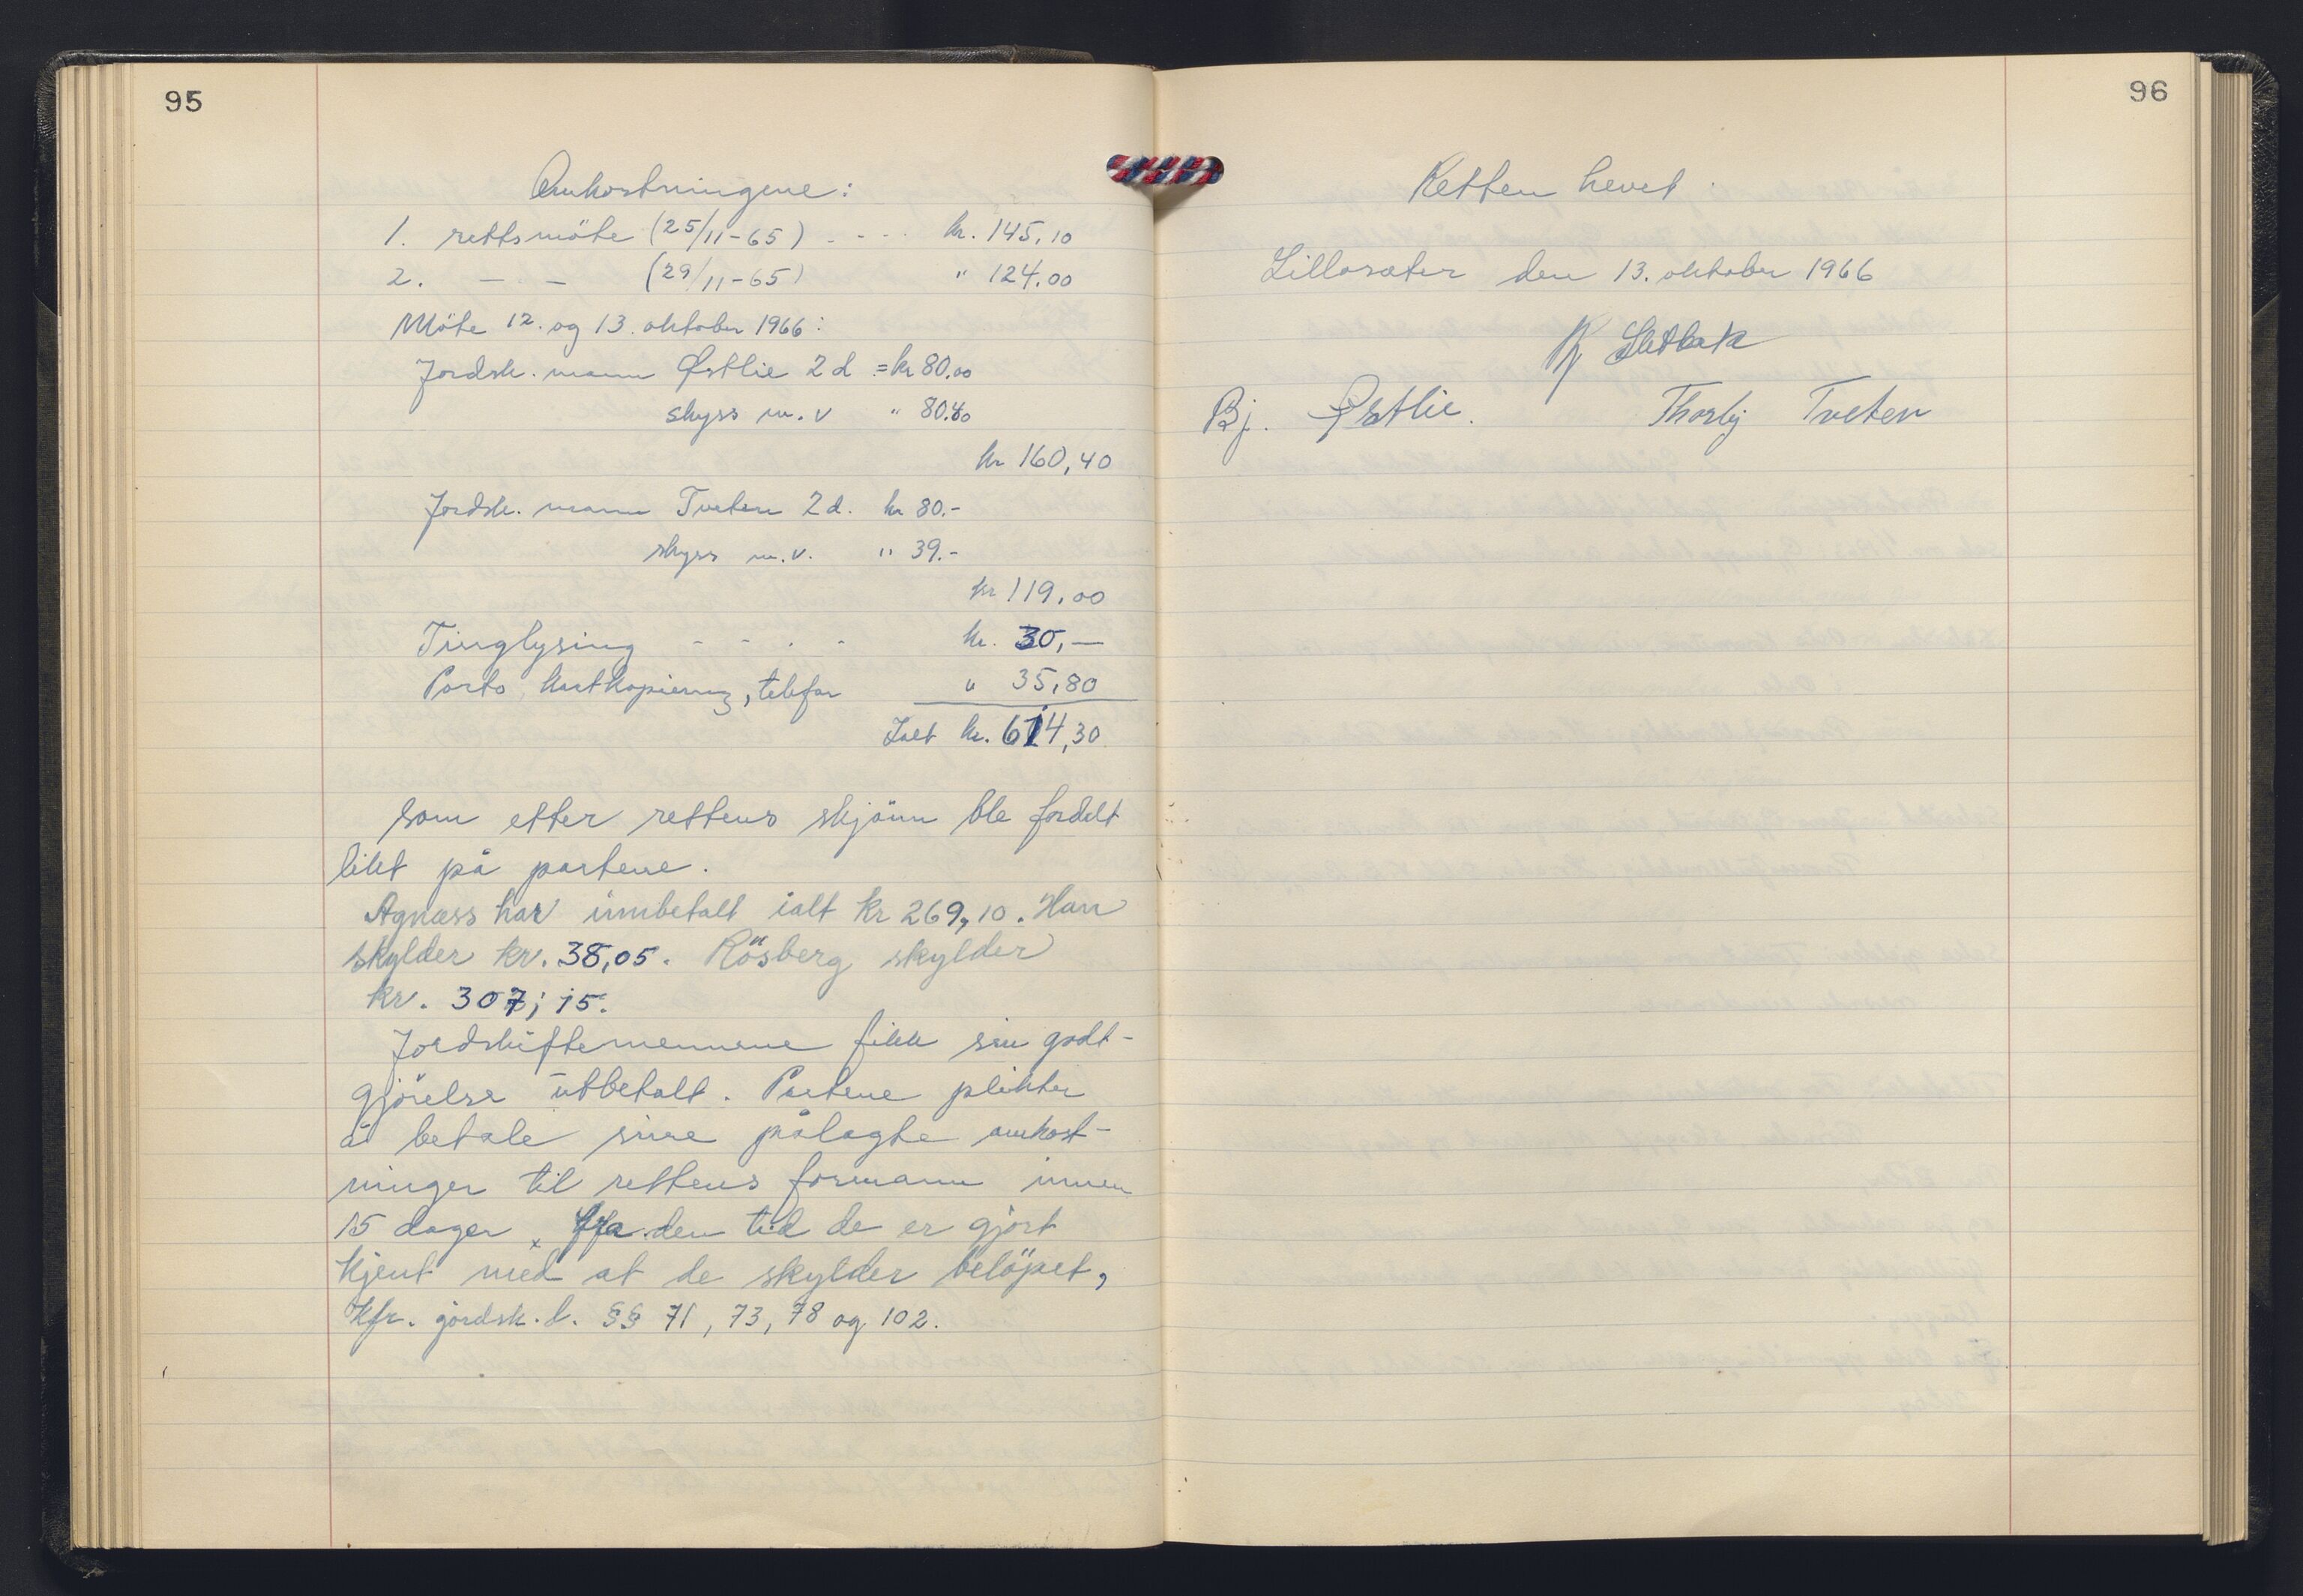 95
Omkostningene:
1. rettsmöte (25/11-65) - - - - kr. 145,10
2. - - - (29/11-65) " 124.00
Möte 12. og 13. oktober 1966:
Jordsk. mann Østlie 2 d = kr 80.00
skyss m. v " 80.40
kr 160,40
Jordsk. mann Tveten 2 d. kr 80.-
skyss m. v. " 39.-
kr 119,00
Tinglysing - - - - kr. 30,—
Porto kartkopiering, telefon " 35,80
Ialt kr. 614,30
som etter rettens skjönn ble fordelt
likt på partene.
Agnæss har innbetalt ialt kr 269,10. Han
skylder kr. 38,05. Rösberg skylder
kr. 307,15.
Jordskiftemennene fikk sin godt-
gjörelse utbetalt. Partene plikter
å betale sine pålagte omkost-
ninger til rettens formann innen
15 dager fra den tid de er gjort
kjent med at de skylder belöpet,
kfr. jordsk. l. §§ 71, 73, 78 og 102.
96
Retten hevet.
Lillosæter den 13. oktober 1966
Bj. Østlie. Tveten